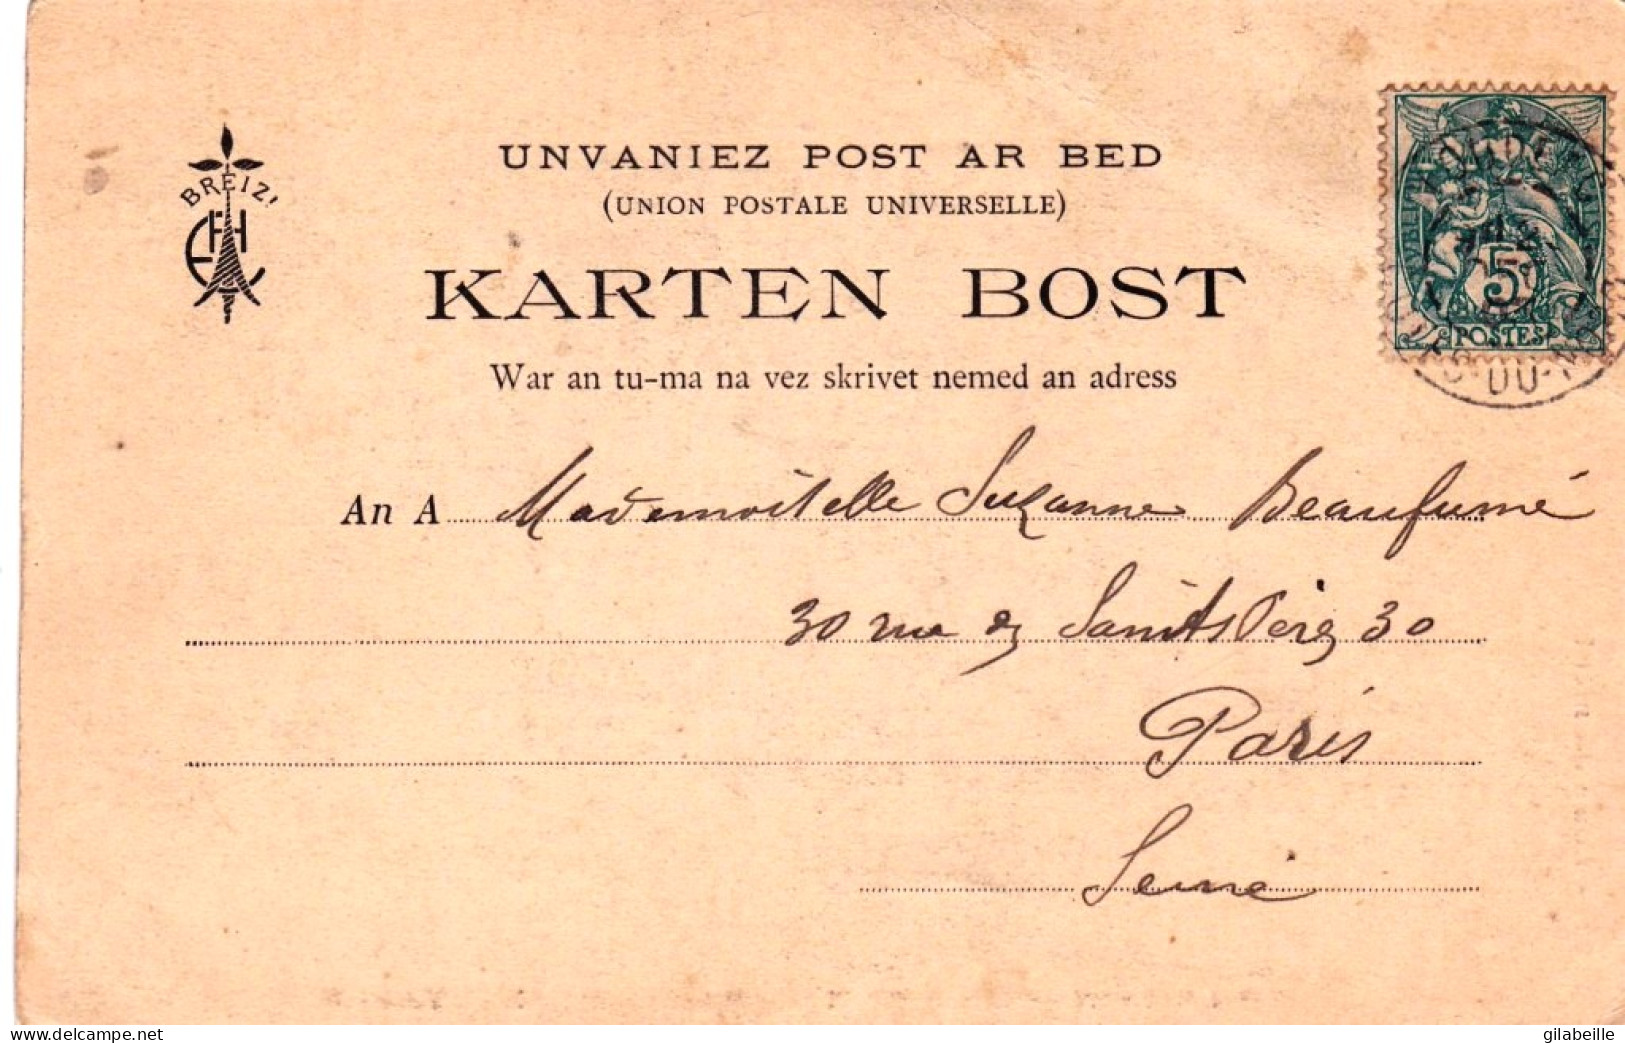 BREIZ!
UNVANIEZ POST AR BED
(UNION POSTALE UNIVERSELLE)
KARTEN BOST
War an tu-ma na vez skrivet nemed an adress
5
POSTES
DU
An A Mademoiselle Suzanne Beaufumé
30 rue des Saints Pères 30
Paris
Seine
www.delcampe.net
gilabeille